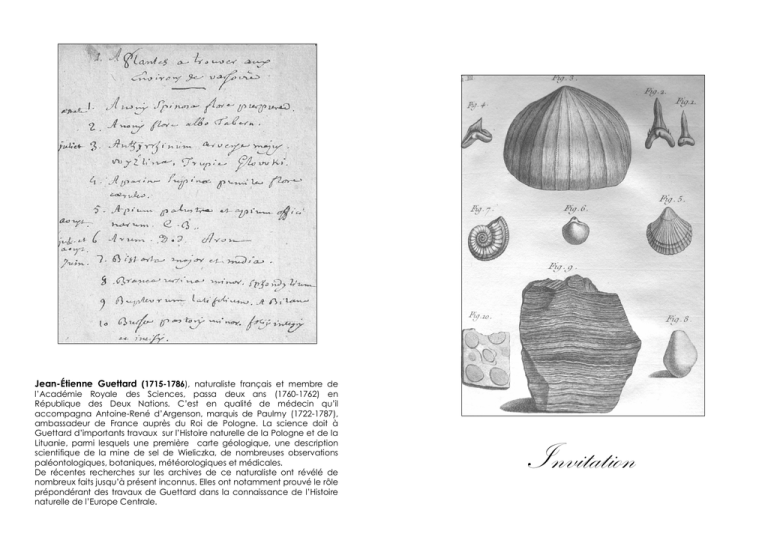 Plantes a trouver aux
environs de
1. Anonis Spinosa flore purpureo.
2. Anonis flore albo Tabern.
juillet 3. Antirrhinum arvense majus
4. Aparine supina pumila flore
5. Apium palustre et apium offici
narum. C. B.
6. Arum. Arum
juin. 7. Bistorta major et media.
8. Branca ursina minor.
9 Bupleurum latifolium.
10. Bursa pastoris minor. foliis integris
Jean-Étienne Guettard (1715-1786), naturaliste français et membre de
l’Académie Royale des Sciences, passa deux ans (1760-1762) en
République des Deux Nations. C’est en qualité de médecin qu’il
accompagna Antoine-René d’Argenson, marquis de Paulmy (1722-1787),
ambassadeur de France auprès du Roi de Pologne. La science doit à
Guettard d’importants travaux sur l’Histoire naturelle de la Pologne et de la
Lituanie, parmi lesquels une première carte géologique, une description
scientifique de la mine de sel de Wieliczka, de nombreuses observations
paléontologiques, botaniques, météorologiques et médicales.
De récentes recherches sur les archives de ce naturaliste ont révélé de
nombreux faits jusqu’à présent inconnus. Elles ont notamment prouvé le rôle
prépondérant des travaux de Guettard dans la connaissance de l’Histoire
naturelle de l’Europe Centrale.
Fig. 3.
Fig. 4.
Fig. 2.
Fig. 1.
Fig. 7.
Fig. 6.
Fig. 5.
Fig. 9.
Fig. 10.
Fig. 8
Invitation